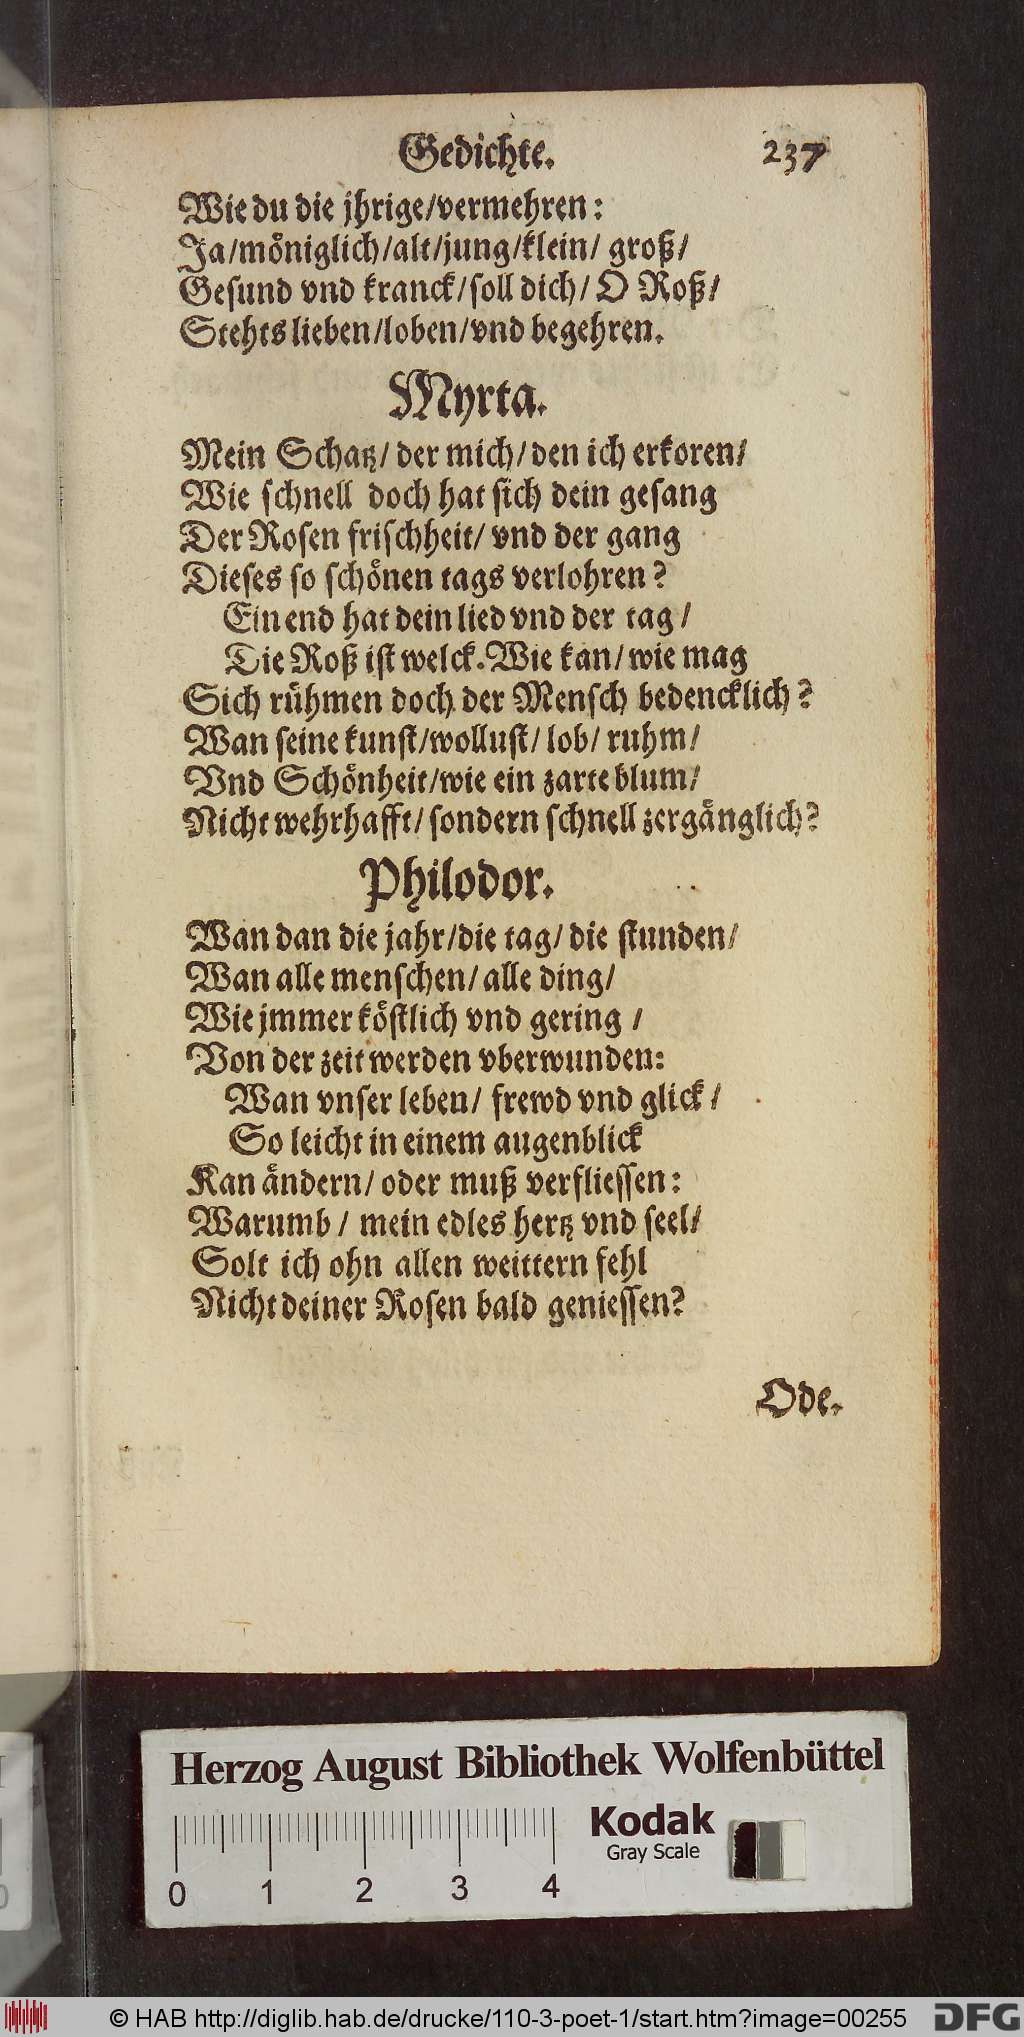 Gedichte. 237
Wie du die jhrige/vermehren:
Ja/möniglich/alt/jung/klein/ groß/
Gesund vnd kranck/soll dich/ O Roß/
Stehts lieben/loben/vnd begehren.
Myrta.
Mein Schatz/ der mich/ den ich erkoren/
Wie schnell doch hat sich dein gesang
Der Rosen frischheit/ vnd der gang
Dieses so schönen tags verlohren?
Ein end hat dein lied vnd der tag/
Die Roß ist welck. Wie kan/ wie mag
Sich rühmen doch der Mensch bedencklich?
Wan seine kunst/wollust/ lob/ ruhm/
Vnd Schönheit/wie ein zarte blum/
Nicht wehrhafft/ sondern schnell zergänglich?
Philodor.
Wan dan die jahr/die tag/ die stunden/
Wan alle menschen/ alle ding/
Wie jmmer köstlich vnd gering /
Von der zeit werden vberwunden:
Wan vnser leben/ frewd vnd glick /
So leicht in einem augenblick
Kan ändern/ oder muß verfliessen:
Warumb / mein edles hertz vnd seel/
Solt ich ohn allen weittern fehl
Nicht deiner Rosen bald geniessen?
Ode.
Herzog August Bibliothek Wolfenbüttel
Kodak
Gray Scale
0 1 2 3 4
© HAB http://diglib.hab.de/drucke/110-3-poet-1/start.htm?image=00255
DFG